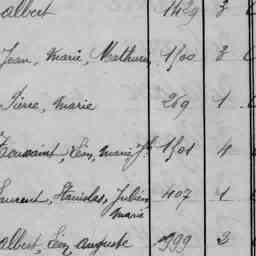 albert 1429 3
Jean, Marie, Mathurin 1500 3
Pierre, Marie 269 1
Toussaint, Léon, Marie, Jh 1501 4
Laurent, Stanislas, Julien 407 1
Marie
albert, Léon auguste 999 3